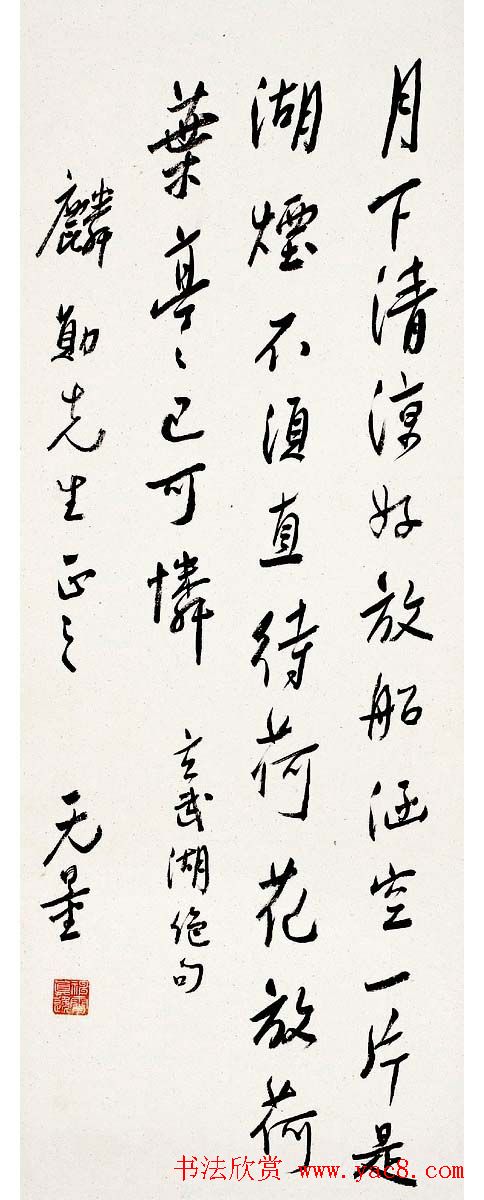 月下清涼好放船涵空一片是
湖煙不須直待荷花放荷
葉亭〻已可憐
玄武湖絶句
麟勛先生正之
无量
书法欣赏www.yac8.com